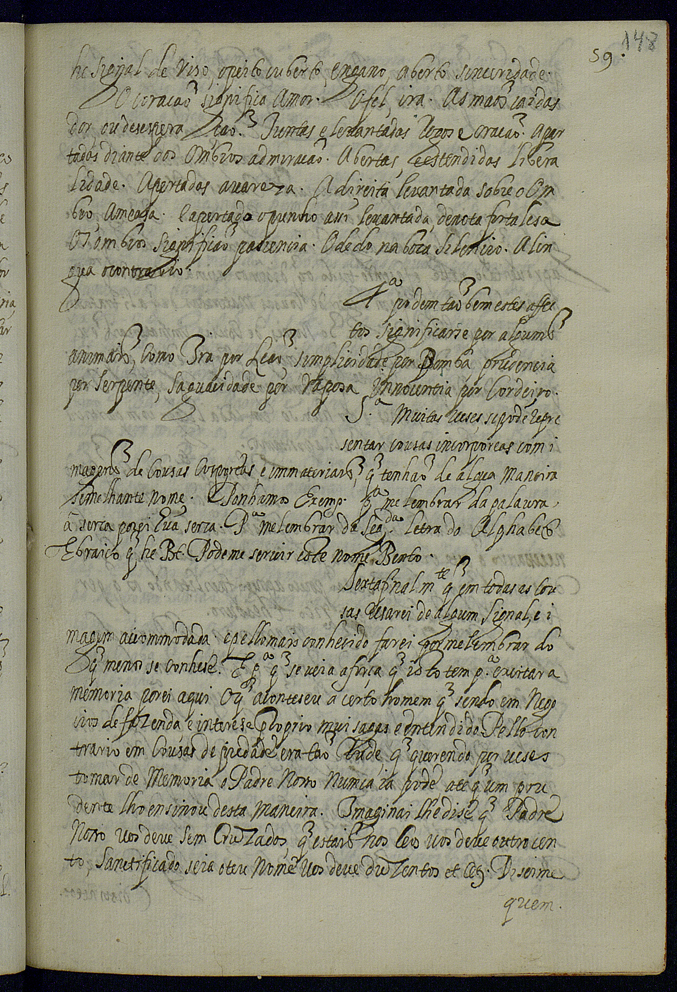 59. 148
he signal de riso, opeito cuberto, engano, aberto sinceridade.
O coracaõ significa Amor. O fel, ira. As maõs caidas
dor ou desespera caõ. Juntas e levantadas logos e oracaõ. aper
tadas diante dos Ombros admiracaõ. Abertas, e estendidas libera
lidade. Apertadas avareza. A direita levantada sobre o Om
bro Ameaça. e apertado o punho assi levantada denota fortalesa
Os ombros significaõ paciencia. O dedo na boca silencio. A lin
gua o contrario.
4.ª podem taõ bem estes affe
tos significarse por alguns
animais, como Ira por Leaõ simplicidade por Pomba prudencia
por Serpente, sagacidade por Raposa Innocentia por Cordeiro.
5.ª Muitas veses se pode repre
sentar cousas incorporeas com i
magens de Cousas Corporeas e immateriais q̃ tenhaõ de algua maneira
semelhante nome. Ponhamos Exemp. Pª me lembrar da palaura,
à serca porei hũa serca. Pª me lembrar da Segda letra do Alphabeto
Ebraico q̃ he Bt. Podeme servir este nome Bento.
Sexta final mte q̃ em todas as cou
sas usarei de algum signal, e i
magem accommodada. e pello mais conhecido farei por me lembrar do
q̃ menos se conhese. E pª q̃ se veia a forsa q̃ isto tem pª excitar a
memoria porei aqui O q̃ aconteseu a certo homem q̃ sendo em Nego
cios de fazenda e interese proprio mui sagas e entendido. Pello con
trario em Cousas de piedade era taõ Rude q̃ querendo por veses
tomar de Memoria o Padre Nosso Nunca ia pode até q̃ um pru
dente lho ensinou desta maneira. Imaginai lhe disse q̃ Padre
Nosso vos deve sem Cruzados, q̃ estais nos Ceos vos deve outro cen
to, Sanctificado seia o teu Nome vos deve duzentos et cetª. Diseime
quem.